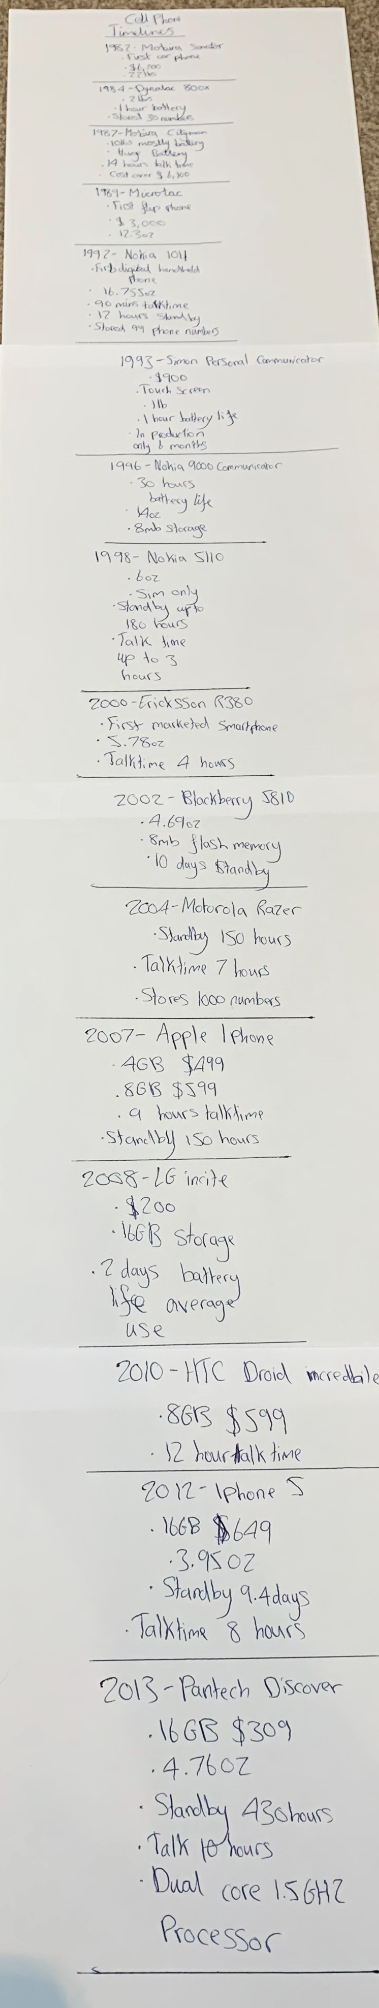 Cell Phone
Timelines
1982- Mobira Senator
· First car phone
· $6,000
· 22 lbs
1984- Dynatac 800x
· 2 lbs
· 1 hour battery
· Stored 30 numbers
1987- Mobira Cityman
· 10lbs mostly battery
Battery
· 14 hours talk time
· Cost over
1989- Microtac
· First flip phone
· $3,000
· 12.3oz
1992- Nokia 1011
· First digital handheld
phone
· 16.755oz
· 90 mins talktime
· 12 hours standby
· Stored 99 phone numbers
1993- Simon Personal Communicator
· $900
· Touch Screen
· 1lb
· 1 hour battery life
· In production
only 6 months
1996- Nokia 9000 Communicator
· 30 hours
battery life
· 14oz
· 8mb storage
1998- Nokia 5110
· 6oz
· Sim only
· Standby up to
180 hours
· Talk time
up to 3
hours
2000- Ericksson R380
· First marketed Smartphone
· 5.78oz
· Talktime 4 hours
2002- Blackberry 5810
· 4.69oz
· 8mb flash memory
· 10 days Standby
2004- Motorola Razer
· Standby 150 hours
· Talktime 7 hours
· Stores 1000 numbers
2007- Apple Iphone
· 4GB $499
· 8GB $599
· 9 hours talktime
· Standby 150 hours
2008- LG incite
· $200
· 16GB Storage
· 2 days battery
life average
use
2010- HTC Droid incredbile
· 8GB $599
· 12 hour talk time
2012- Iphone 5
· 16GB $649
· 3.95OZ
· Standby 9.4days
· Talktime 8 hours
2013- Pantech Discover
· 16GB $309
· 4.76OZ
· Standby 430hours
· Talk 10 hours
· Dual core 1.5GHZ
Processor